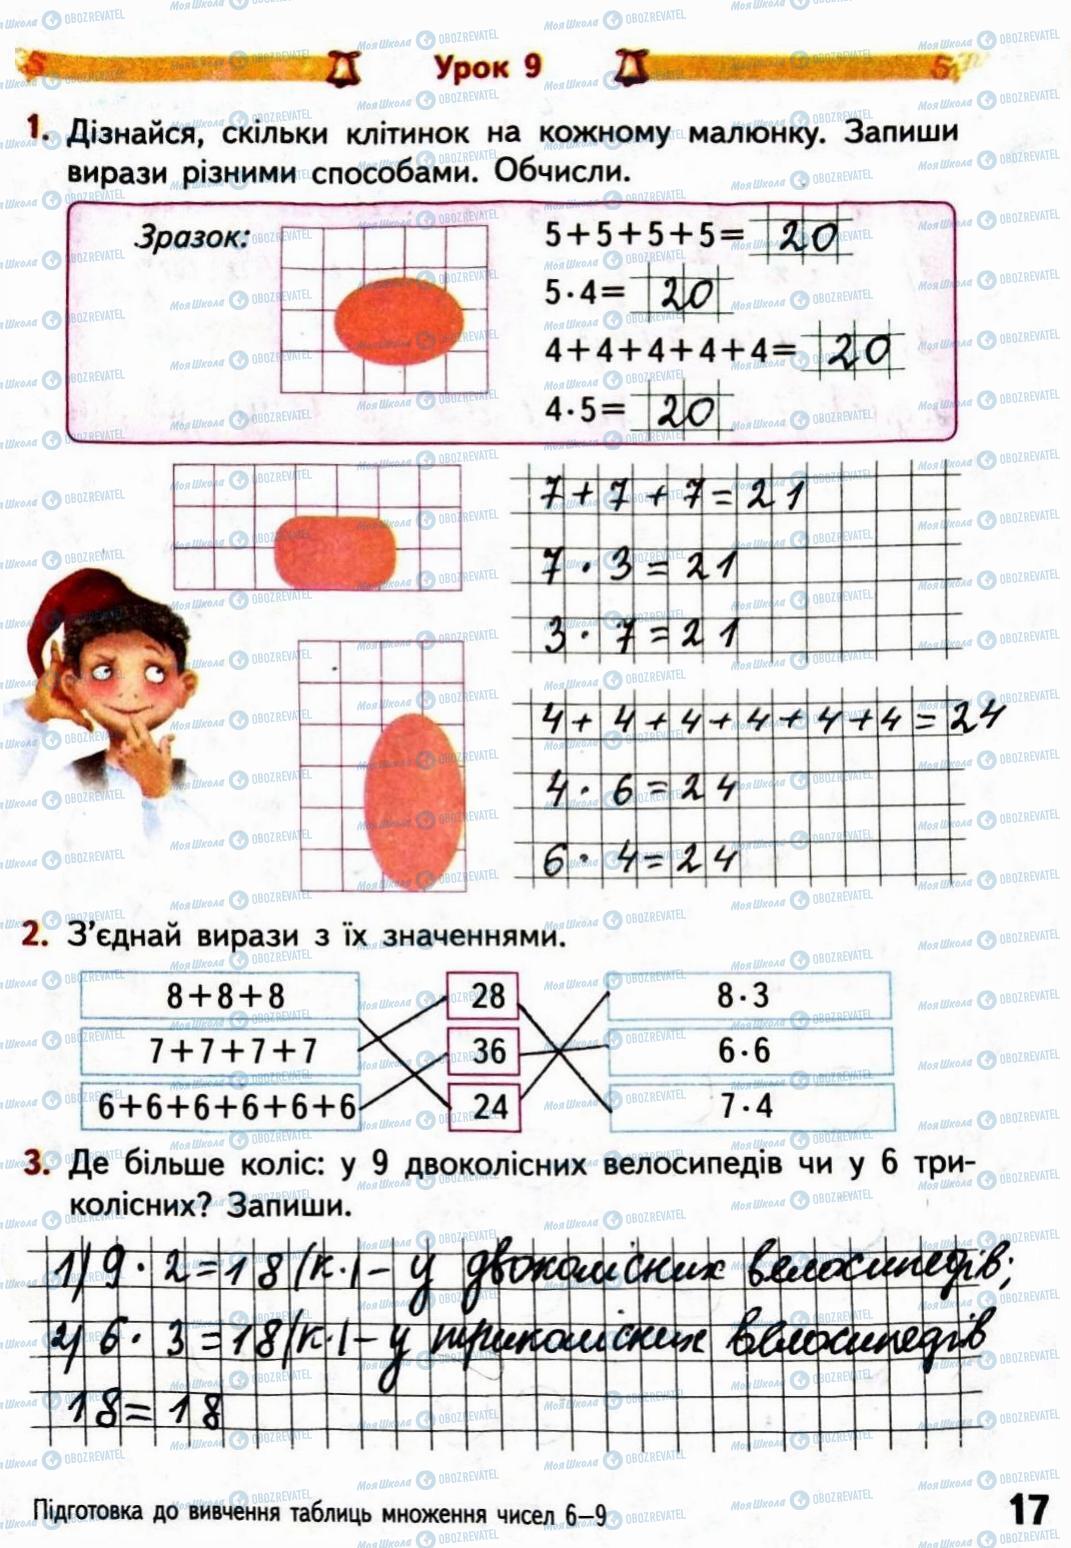 Урок 9
1. Дізнайся, скільки клітинок на кожному малюнку. Запиши
вирази різними способами. Обчисли.
Зразок:
5+5+5+5= 20
5·4= 20
4+4+4+4+4= 20
4·5= 20
7+7+7=21
7·3=21
3·7=21
4+4+4+4+4+4=24
4·6=24
6·4=24
2. З’єднай вирази з їх значеннями.
8+8+8 28 8·3
7+7+7+7 36 6·6
6+6+6+6+6+6 24 7·4
3. Де більше коліс: у 9 двоколісних велосипедів чи у 6 три-
колісних? Запиши.
1) 9·2=18(к.)-у двоколісних велосипедів;
2) 6·3=18(к.)-у триколісних велосипедів
18=18
Підготовка до вивчення таблиць множення чисел 6–9
17
МояШкола OBOZREVATEL